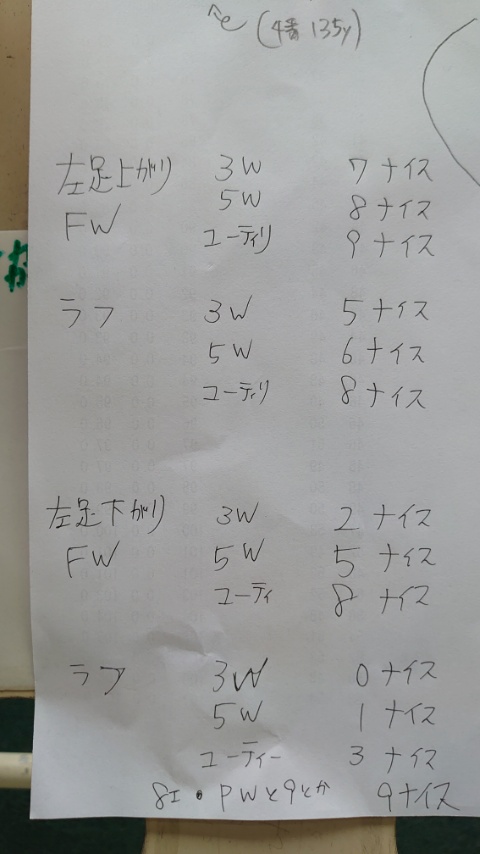 (4番 135y)
左足上がり 3W 7ナイス
FW 5W 8ナイス
ユーティリ 9ナイス
ラフ 3W 5ナイス
5W 6ナイス
ユーティリ 8ナイス
左足下がり 3W 2ナイス
FW 5W 5ナイス
ユーティ 8ナイス
ラフ 3W 0ナイス
5W 1ナイス
ユーティー 3ナイス
8I・PWと9とか 9ナイス